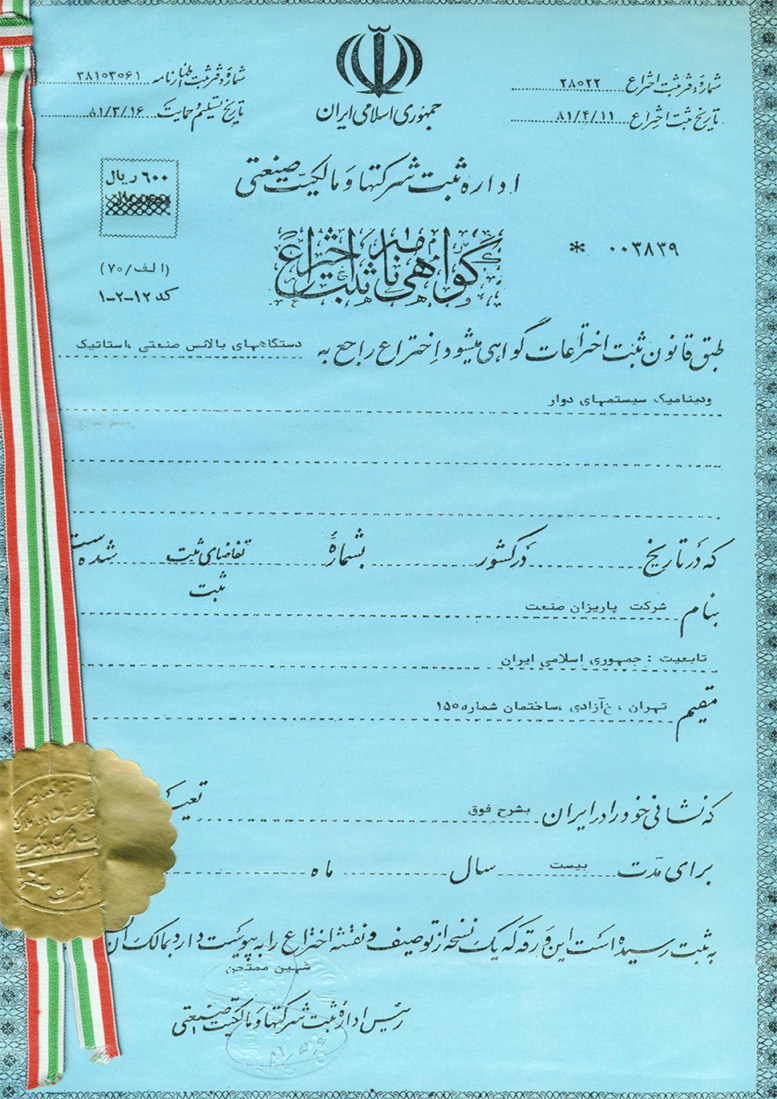 جمهوری اسلامی ایران
شماره دفتر ثبت اختراع ۲۸۰۲۲
تاریخ ثبت اختراع ۸۱/۴/۱۱
شماره دفتر ثبت اظهارنامه ۳۸۱۰۳۰۶۱
تاریخ تسلیم و حمایت ۸۱/۳/۱۶
اداره ثبت شرکتها و مالکیت صنعتی
۶۰۰ ریال
گواهی نامه ثبت اختراع
* ۰۰۳۸۳۹
(الف/۷۰)
کد ۱۲-۲-۱
طبق قانون ثبت اختراعات گواهی میشود اختراع راجع به دستگاههای بالانس صنعتی ،استاتیک
ودینامیک سیستمهای دوار
که در تاریخ در کشور بشماره تقاضای ثبت شده است
ثبت
بنام شرکت پاریزان صنعت
تابعیت : جمهوری اسلامی ایران
مقیم تهران ، خ‌آزادی ،ساختمان شماره ۱۵۰
که نشانی خود را در ایران بشرح فوق
برای مدت بیست سال ماه
به ثبت رسیده است این ورقه که یک نسخه از توصیف و نقشه اختراع را به پیوست دارد بمالک آن
شهین ممتحن
رئیس اداره ثبت شرکتها و مالکیت صنعتی